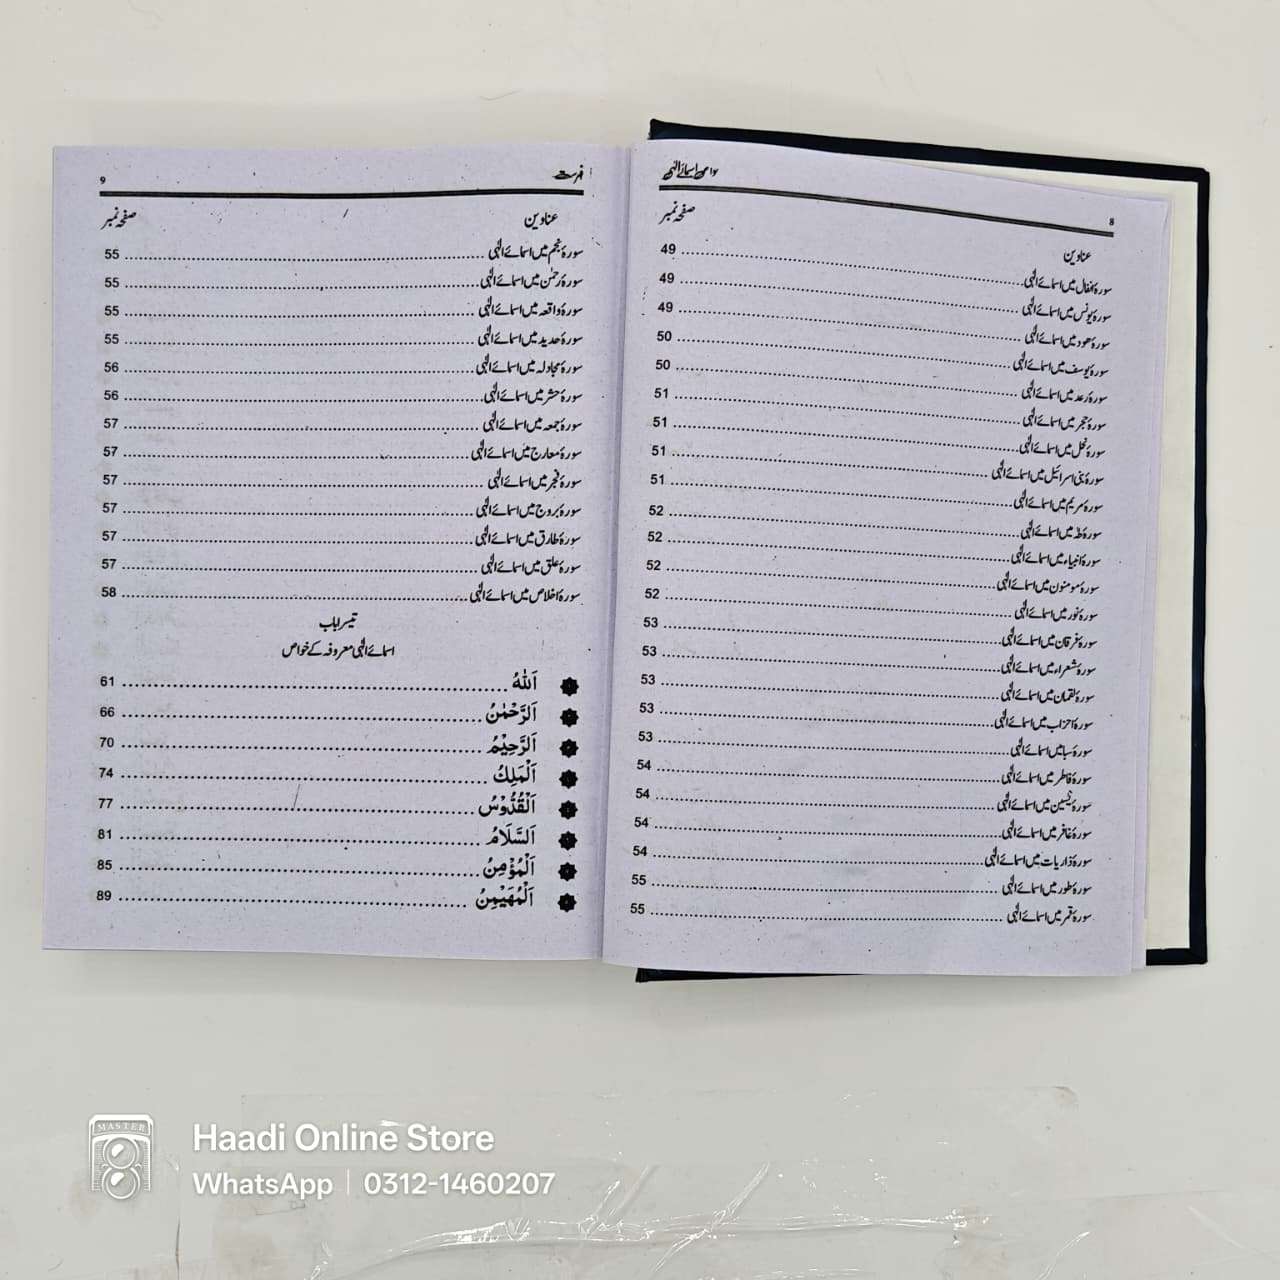 8
خواص اسمائے الٰہی
عناوین صفحہ نمبر
سورۂ انفال میں اسمائے الٰہی ........ 49
سورۂ یونس میں اسمائے الٰہی ........ 49
سورۂ ھود میں اسمائے الٰہی ........ 49
سورۂ یوسف میں اسمائے الٰہی ........ 50
سورۂ رعد میں اسمائے الٰہی ........ 50
سورۂ حجر میں اسمائے الٰہی ........ 51
سورۂ نحل میں اسمائے الٰہی ........ 51
سورۂ بنی اسرائیل میں اسمائے الٰہی ........ 51
سورۂ مریم میں اسمائے الٰہی ........ 51
سورۂ طٰہٰ میں اسمائے الٰہی ........ 52
سورۂ انبیاء میں اسمائے الٰہی ........ 52
سورۂ مومنون میں اسمائے الٰہی ........ 52
سورۂ نور میں اسمائے الٰہی ........ 52
سورۂ فرقان میں اسمائے الٰہی ........ 53
سورۂ شعراء میں اسمائے الٰہی ........ 53
سورۂ لقمان میں اسمائے الٰہی ........ 53
سورۂ احزاب میں اسمائے الٰہی ........ 53
سورۂ سبا میں اسمائے الٰہی ........ 53
سورۂ فاطر میں اسمائے الٰہی ........ 54
سورۂ یٰسین میں اسمائے الٰہی ........ 54
سورۂ غافر میں اسمائے الٰہی ........ 54
سورۂ ذاریات میں اسمائے الٰہی ........ 54
سورۂ طور میں اسمائے الٰہی ........ 55
سورۂ قمر میں اسمائے الٰہی ........ 55
فہرست 9
عناوین صفحہ نمبر
سورۂ نجم میں اسمائے الٰہی ........ 55
سورۂ رحمٰن میں اسمائے الٰہی ........ 55
سورۂ واقعہ میں اسمائے الٰہی ........ 55
سورۂ حدید میں اسمائے الٰہی ........ 55
سورۂ مجادلہ میں اسمائے الٰہی ........ 56
سورۂ حشر میں اسمائے الٰہی ........ 56
سورۂ جمعہ میں اسمائے الٰہی ........ 57
سورۂ معارج میں اسمائے الٰہی ........ 57
سورۂ فجر میں اسمائے الٰہی ........ 57
سورۂ بروج میں اسمائے الٰہی ........ 57
سورۂ طارق میں اسمائے الٰہی ........ 57
سورۂ علق میں اسمائے الٰہی ........ 57
سورۂ اخلاص میں اسمائے الٰہی ........ 58
تیسرا باب
اسمائے الٰہی معروفہ کے خواص
اَللّٰهُ ........ 61
اَلرَّحْمٰنُ ........ 66
اَلرَّحِيْمُ ........ 70
اَلْمَلِكُ ........ 74
اَلْقُدُّوْسُ ........ 77
اَلسَّلَامُ ........ 81
اَلْمُؤْمِنُ ........ 85
اَلْمُهَيْمِنُ ........ 89
MASTER
Haadi Online Store
WhatsApp | 0312-1460207